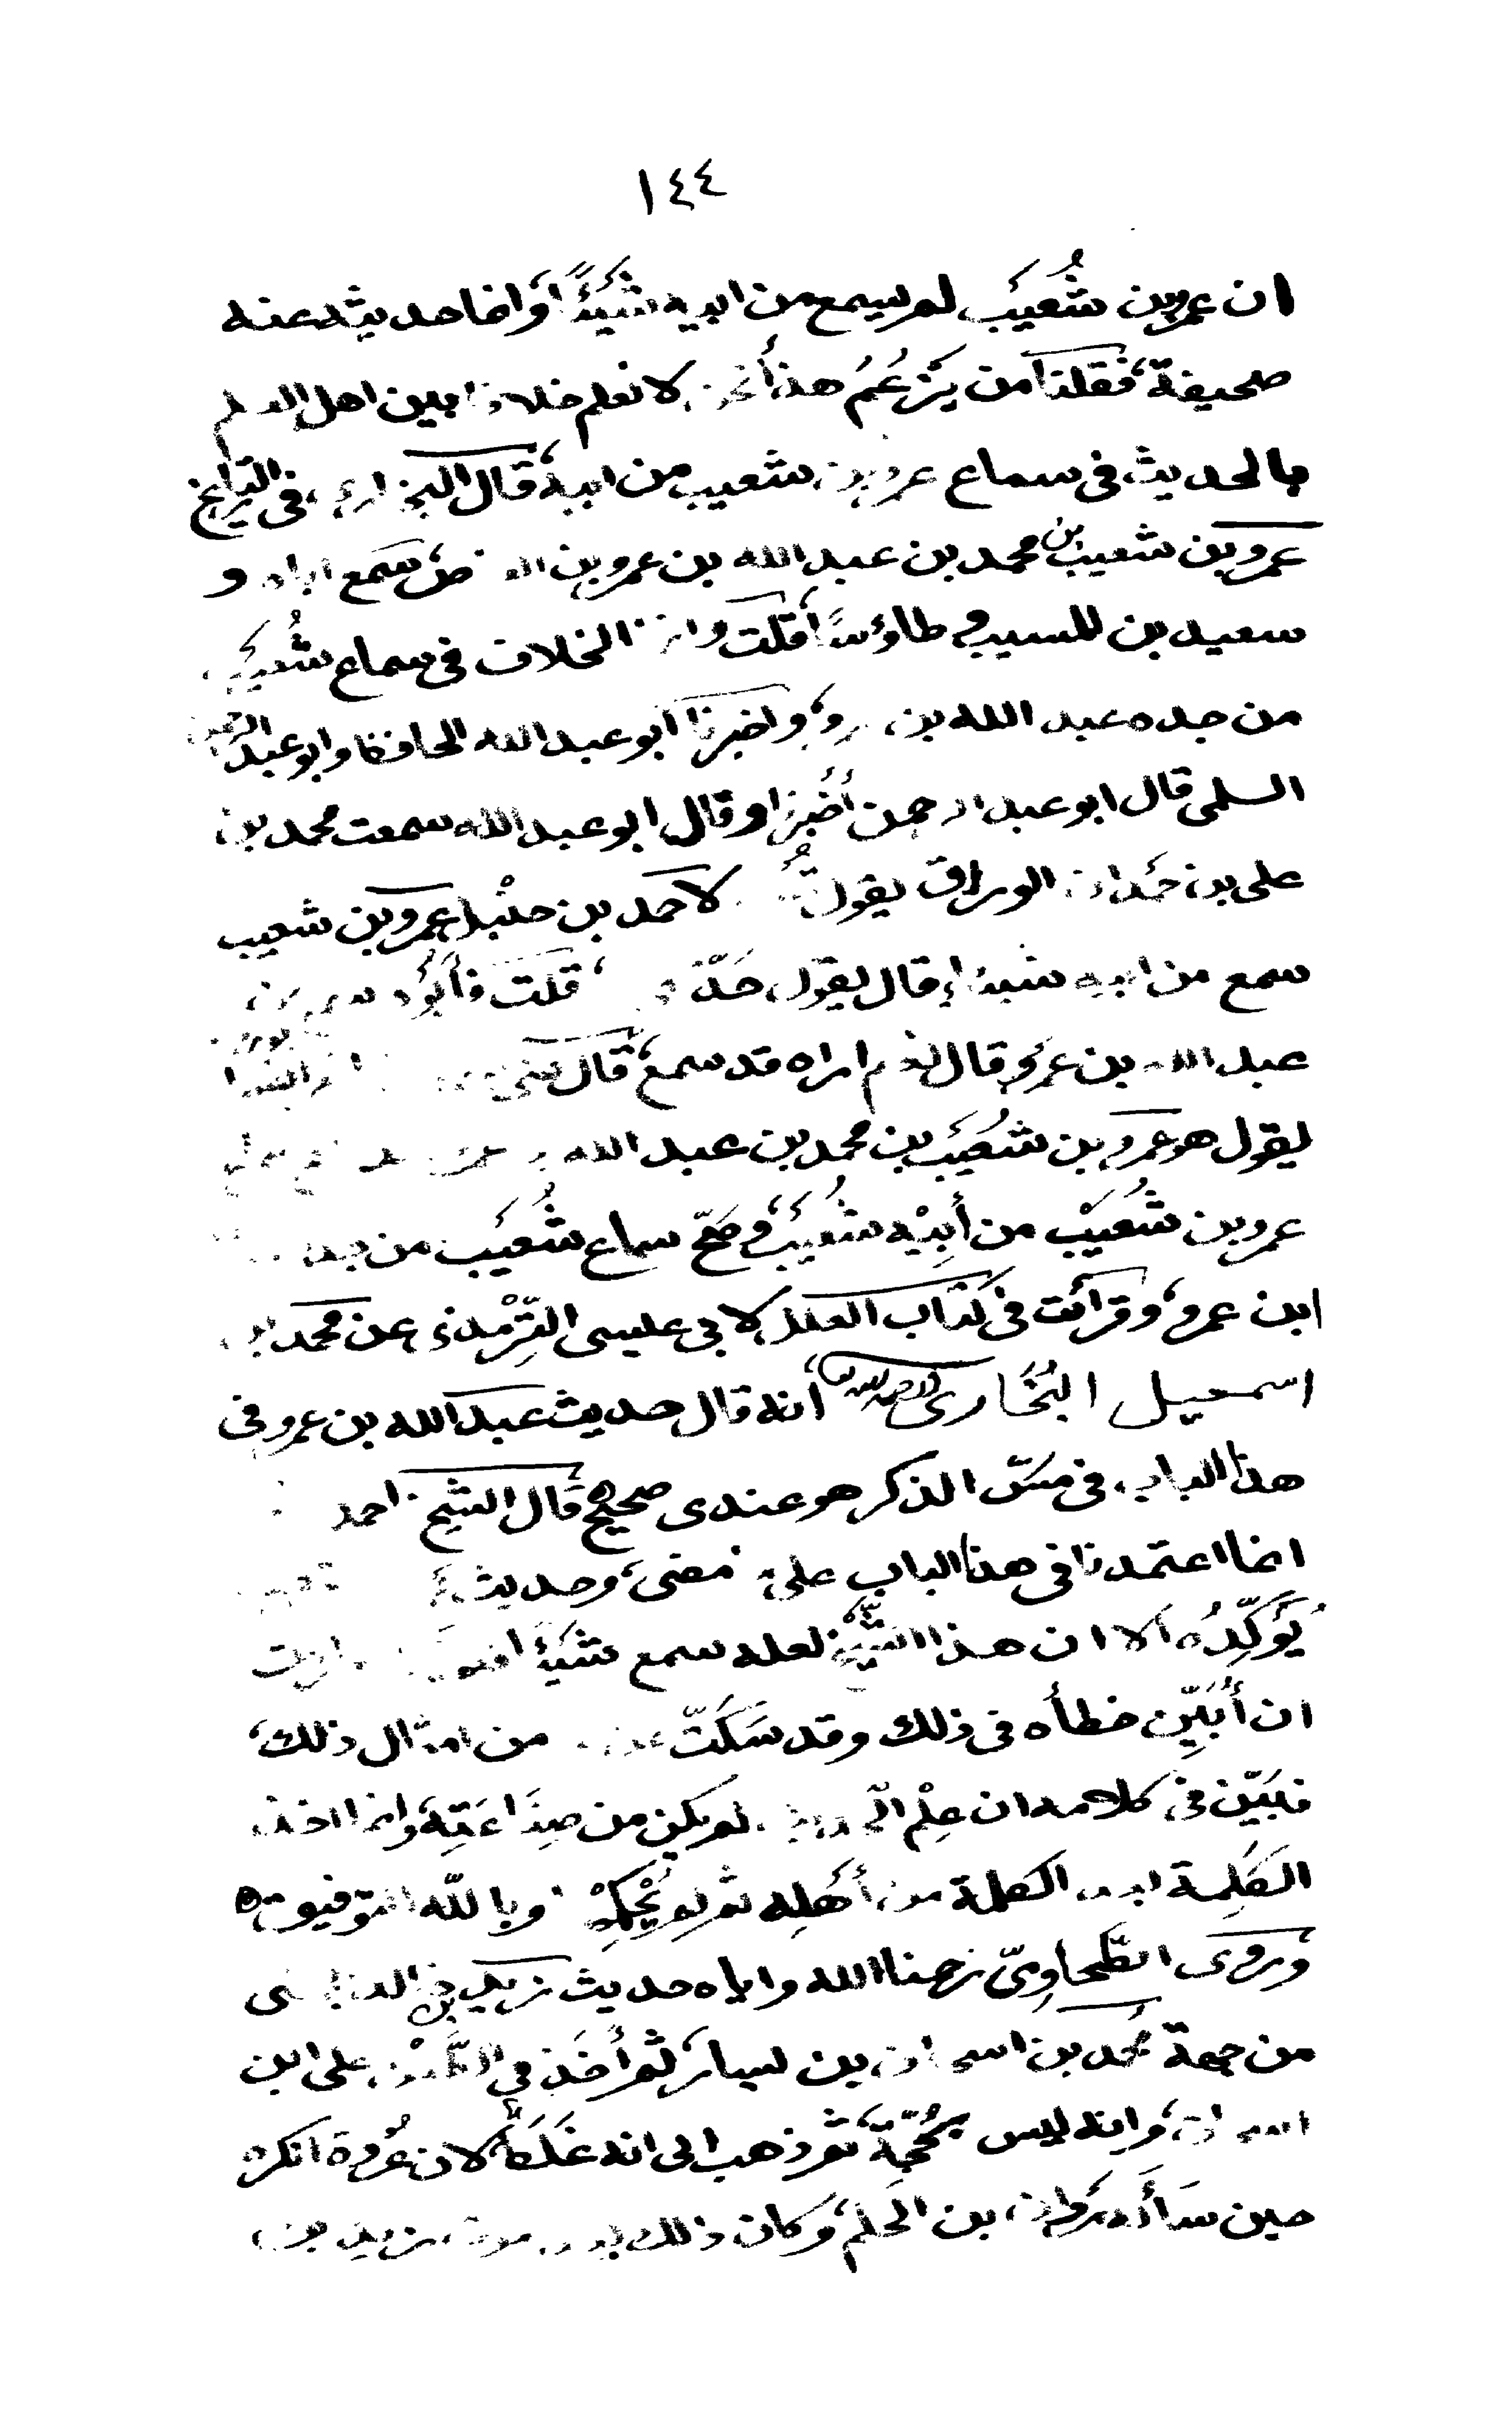 ١٤٤
ان عمرو بن شُعَيب لم يسمع من ابيه شَيْئًا، وانما حديثه عنه
صحيفة، فقلنا من يَزْعُمُ هذا نحن لا نعلم خلافا بين اهل العلم
بالحديث في سماع عمرو بن شعيب من ابيه، قال البخاري في التاريخ
عمرو بن شعيب بن محمد بن عبد الله بن عمرو بن العاص، سَمع اباه و
سعيد بن المسيب و طاؤسًا، قلت وانما الخلاف في سماع شُعيب
من جده عبد الله بن عمرو، واخبرنا ابو عبد الله الحافظ وابو عبد الرحمن
السلمي قال ابو عبد الرحمن أُخْبِرْنا وقال ابو عبد الله سمعت محمد بن
على بن حَمْدان الوراق يقول قُلْتُ لاحمد بن حنْبل عمرو بن شعيب
سمع من ابيه شيئا قال يقول حَدّثني ابي، قلت فأَبُوه سمع من
عبد الله بن عمرو قال نعم اراه قد سمع، قال
يقول هو عمرو بن شُعَيب بن محمد بن عبد الله بن عمرو
عمرو بن شُعَيْب من أَبِيْه شُعَيب، وصَحّ سماع شُعَيب من جده
ابن عمرو، وقرأت في كتاب العلل لابي عيسى التِّرْمذي عن محمد بن
اسمعيل البُخَارى رحمه الله انه قال حديث عبد الله بن عمرو في
هذا الباب في مَسّ الذكر هو عندى صحيح قال الشيخ احمد
انما اعتمدنا في هذا الباب على مضى، وحديث
يُؤَكِّدُه الا ان هذا الشَّيْخ لعله سمع شَيْئًا اردت
ان أُبَيِّن خطأه في ذلك وقد سَكَتّ من امثال ذلك،
فبَيَّن في كلامه ان عِلْم الحديث لم يكن من صِنَاعَتِه، وانما اخذ
الكَلِمة بعد الكلمة من أهْلِه ثم لم يُحْكِمْه وبا للّٰه التوفيق ه
وَرَوى الطّحاوِىّ رحمنا الله واياه حديث زيد بن خالد الجهنى
من جهة محمد بن اسحاق بن يسار، ثم أخَذ في الطَّعْن على ابن
اسحاق، وانه ليس بحُجّة، ثم ذهب الى انه غَلَط لان عُروة انكره
حين سَأَله مروان بن الحكم، وكان ذلك بعد موت زيد بن